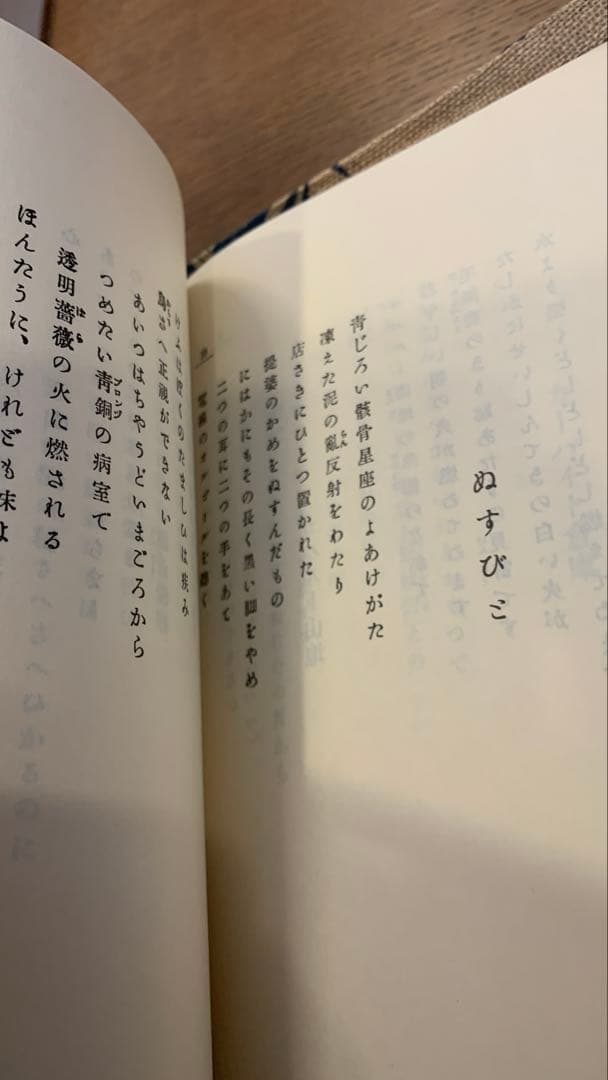 ぬすびと
青じろい骸骨星座のよあけがた
凍えた泥の亂反射をわたり
店さきにひとつ置かれた
提婆のかめをぬすんだもの
にはかにもその長く黒い脚をやめ
二つの耳に二つの手をあて
電線のオルゴールを聴く
けふはぼくのたましひは疾み
烏さへ正視ができない
あいつはちやうどいまごろから
つめたい青銅の病室で
透明薔薇の火に燃される
ほんたうに、けれども妹よ